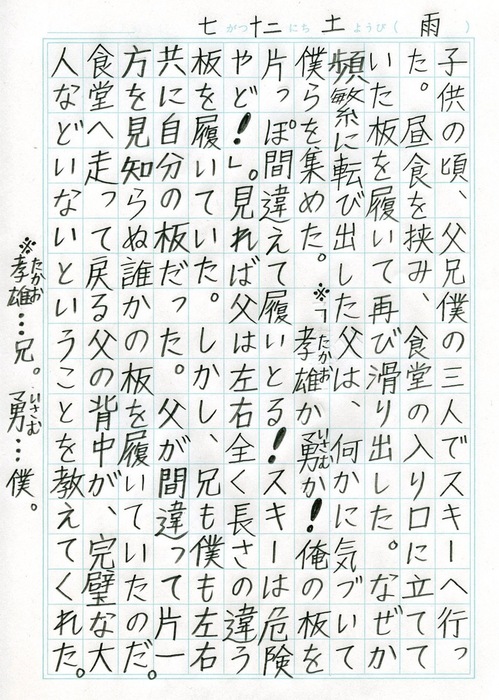 七がつ十二にち土ようび(雨)
子供の頃、父兄僕の三人でスキーへ行っ
た。昼食を挟み、食堂の入り口に立てて
いた板を履いて再び滑り出した。なぜか
頻繁に転び出した父は、何かに気づいて
僕らを集めた。※「孝雄(たかお)か勇(いさむ)か!俺の板を
片っぽ間違えて履いとる!スキーは危険
やど!」。見れば父は左右全く長さの違う
板を履いていた。しかし、兄も僕も左右
共に自分の板だった。父が間違って片一
方を見知らぬ誰かの板を履いていたのだ。
食堂へ走って戻る父の背中が、完璧な大
人などいないということを教えてくれた。
※孝雄(たかお)…兄。勇(いさむ)…僕。